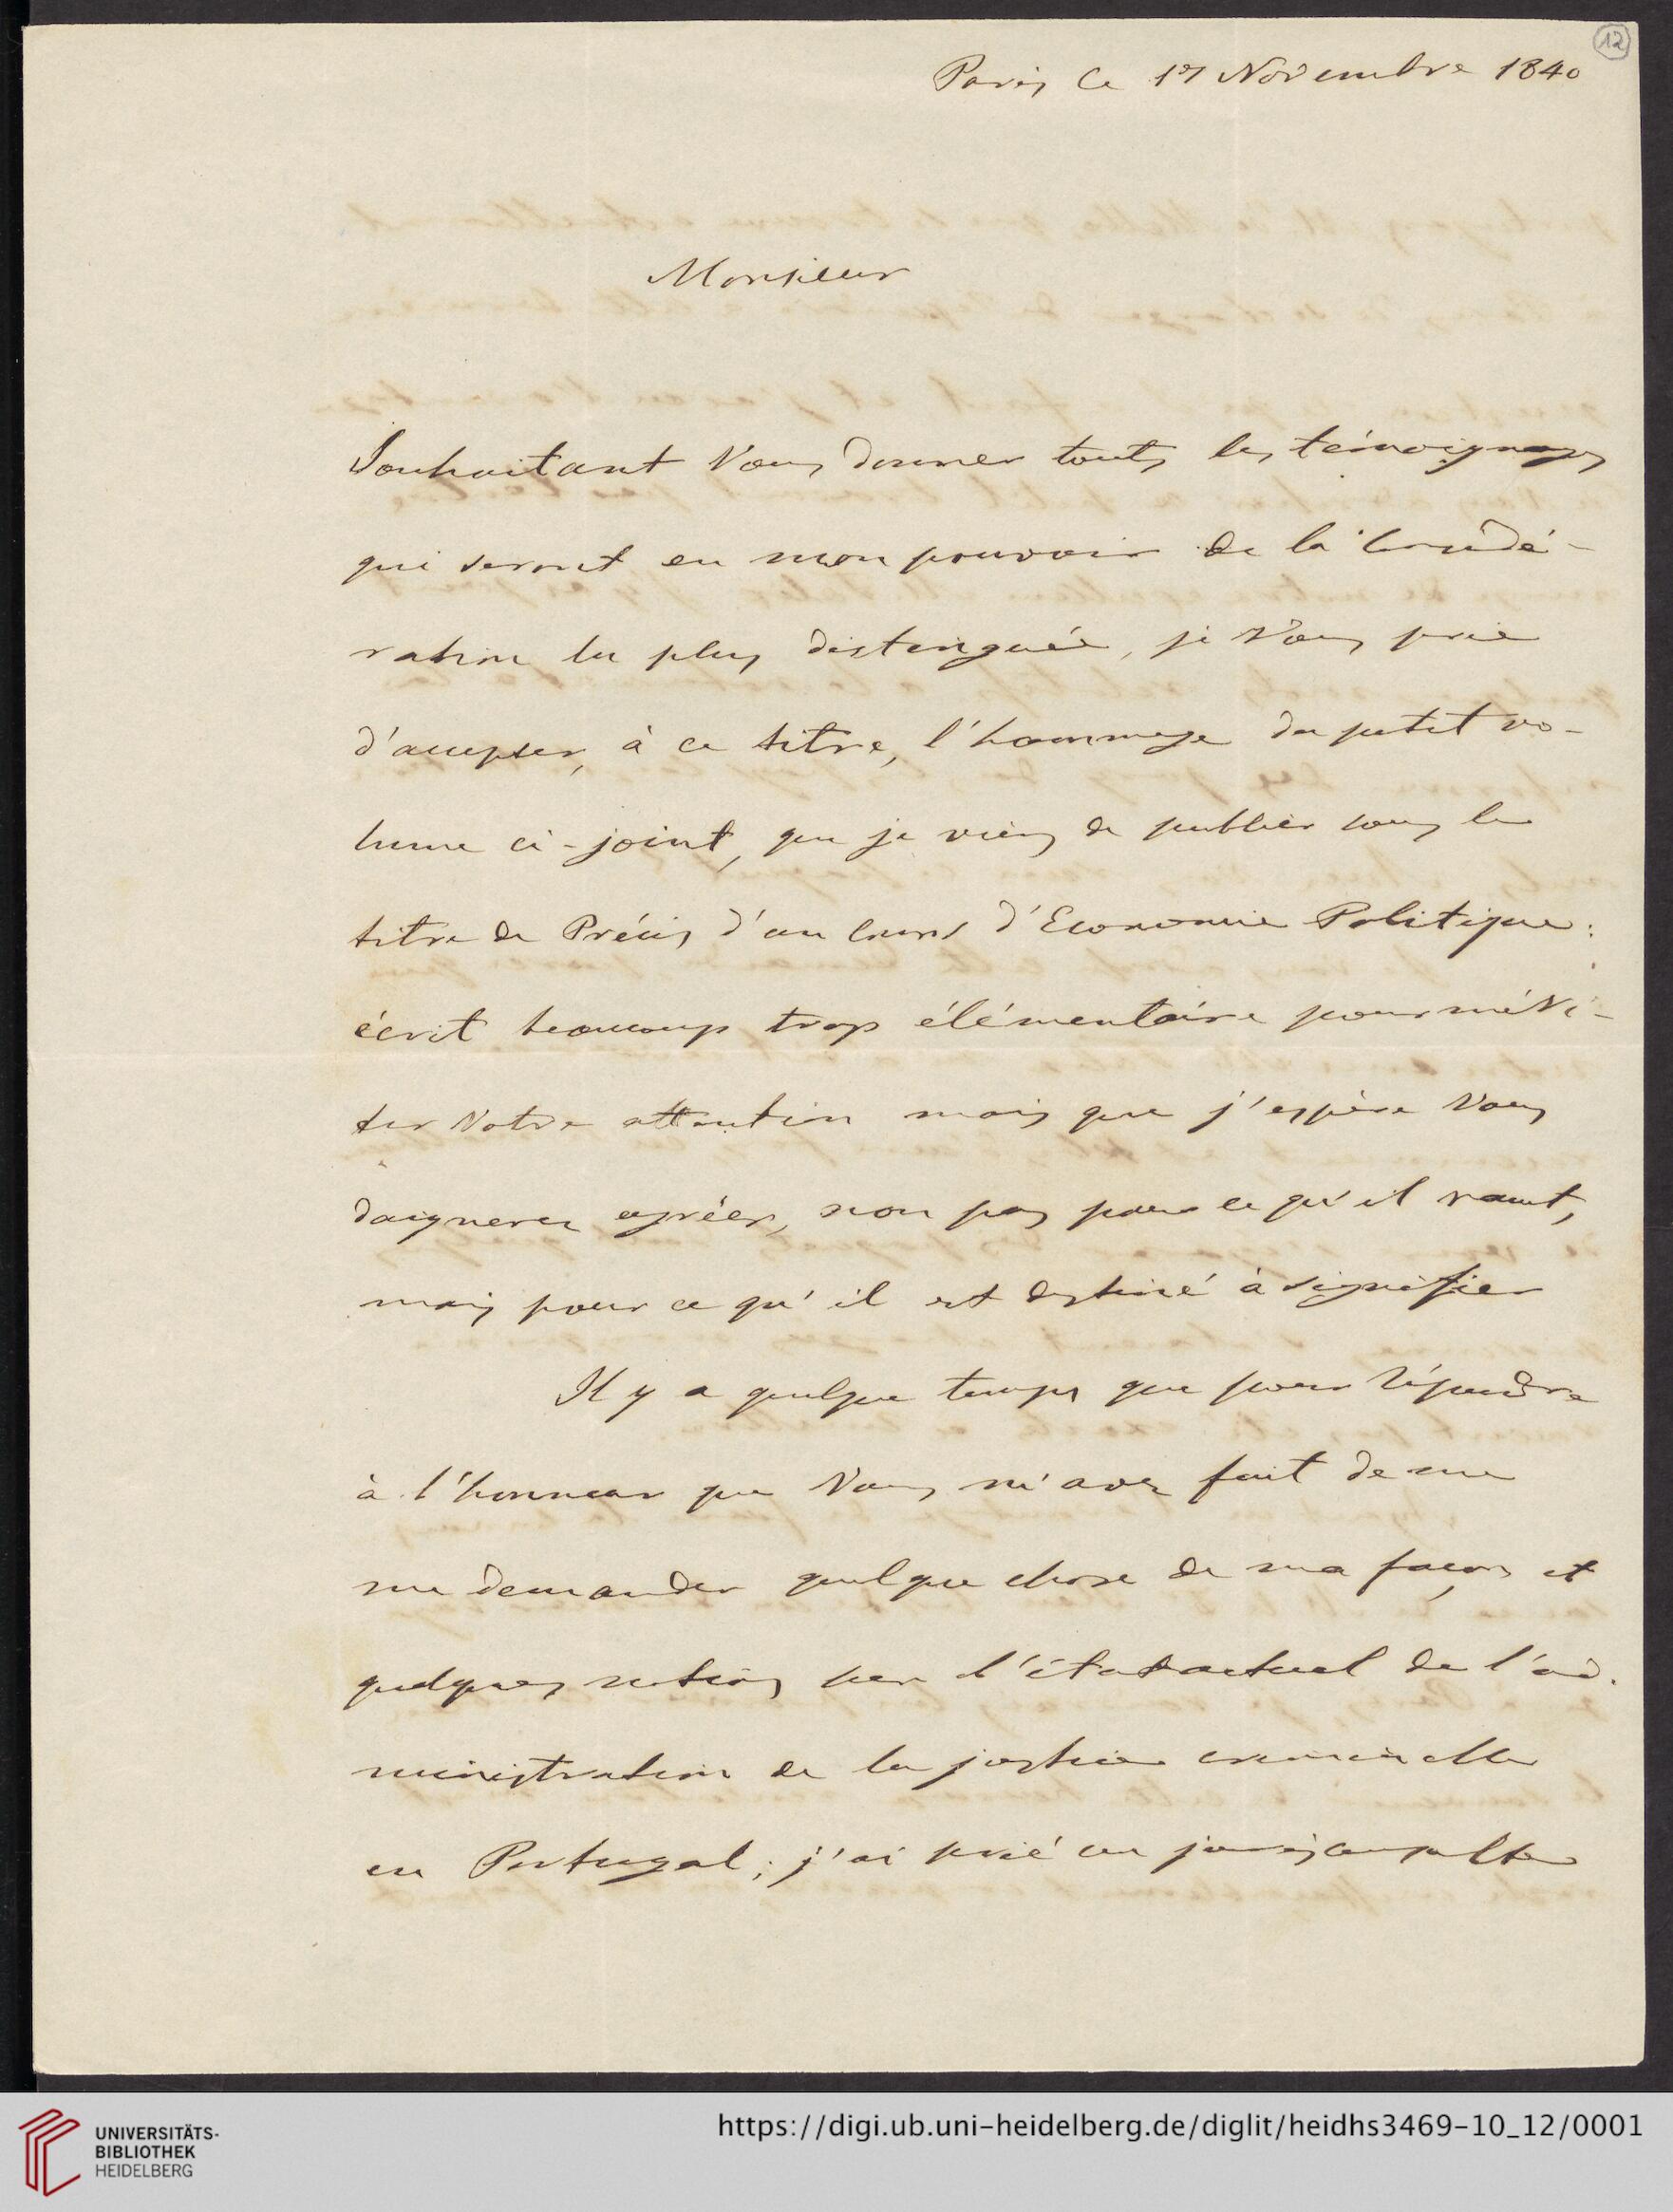 12
Paris ce 17 Novembre 1840
Monsieur
Souhaitant Vous donner touts les témoignages
qui seront en mon pouvoir de la considé-
ration la plus distinguée, je Vous prie
d'accepter, à ce titre, l'hommage du petit vo-
lume ci-joint, que je viens de publier sous le
titre de Précis d'un Cours d'Economie Politique:
écrit beaucoup trop élémentaire pour méri-
ter Votre attention mais que j'espère Vous
daignerez agréer, non pas pour ce qu'il vaut,
mais pour ce qu'il est destiné à signifier
Il y a quelque temps que pour répondre
à l'honneur que Vous m'avez fait de me
me demander quelque chose de ma façon et
quelques notions sur l'état actuel de l'ad-
ministration de la justice criminelle
en Portugal; j'ai prié un jurisconsulte
UNIVERSITÄTS-
BIBLIOTHEK
HEIDELBERG
https://digi.ub.uni-heidelberg.de/diglit/heidhs3469-10_12/0001